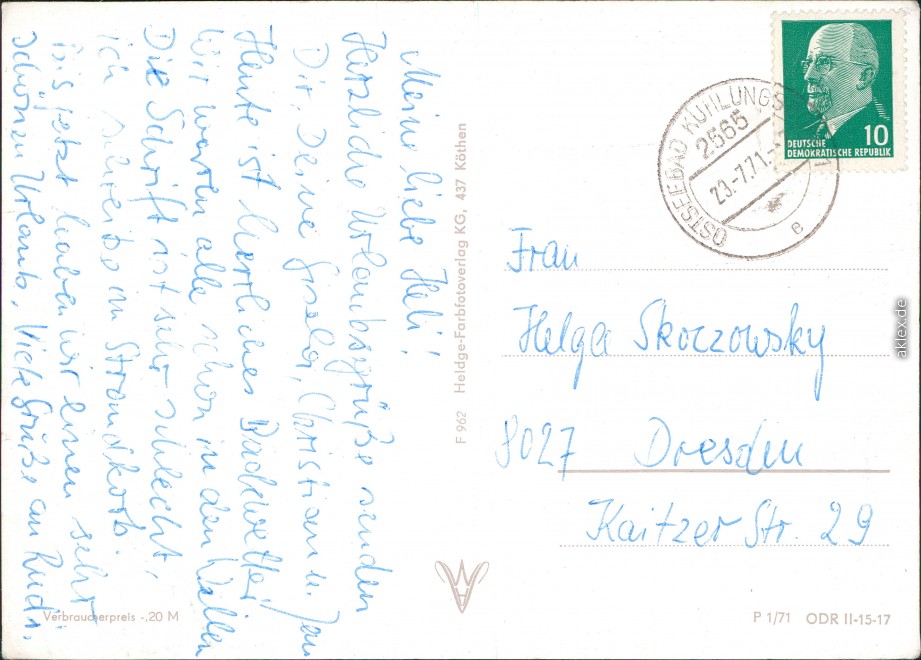 Meine liebe Heli!
Herzliche Urlaubsgrüße senden
Dir, Deine Gisela, Christian u. Jan
Heute ist herrliches Badewetter
Wir waren alle schon in den Wellen
Die Schrift ist sehr schlecht,
ich schreibe im Strandkorb.
Bis jetzt haben wir einen sehr
schönen Urlaub. Viele Grüße an Rudi.
F 962 Heldge-Farbfotoverlag KG, 437 Köthen
OSTSEEBAD KÜHLUNGS
2565
23.-7.71.-
e
DEUTSCHE
DEMOKRATISCHE REPUBLIK
10
Frau
Helga Skoczowsky
8027 Dresden
Kaitzer Str. 29
Verbraucherpreis -.20 M
P 1/71 ODR II-15-17
aklex.de